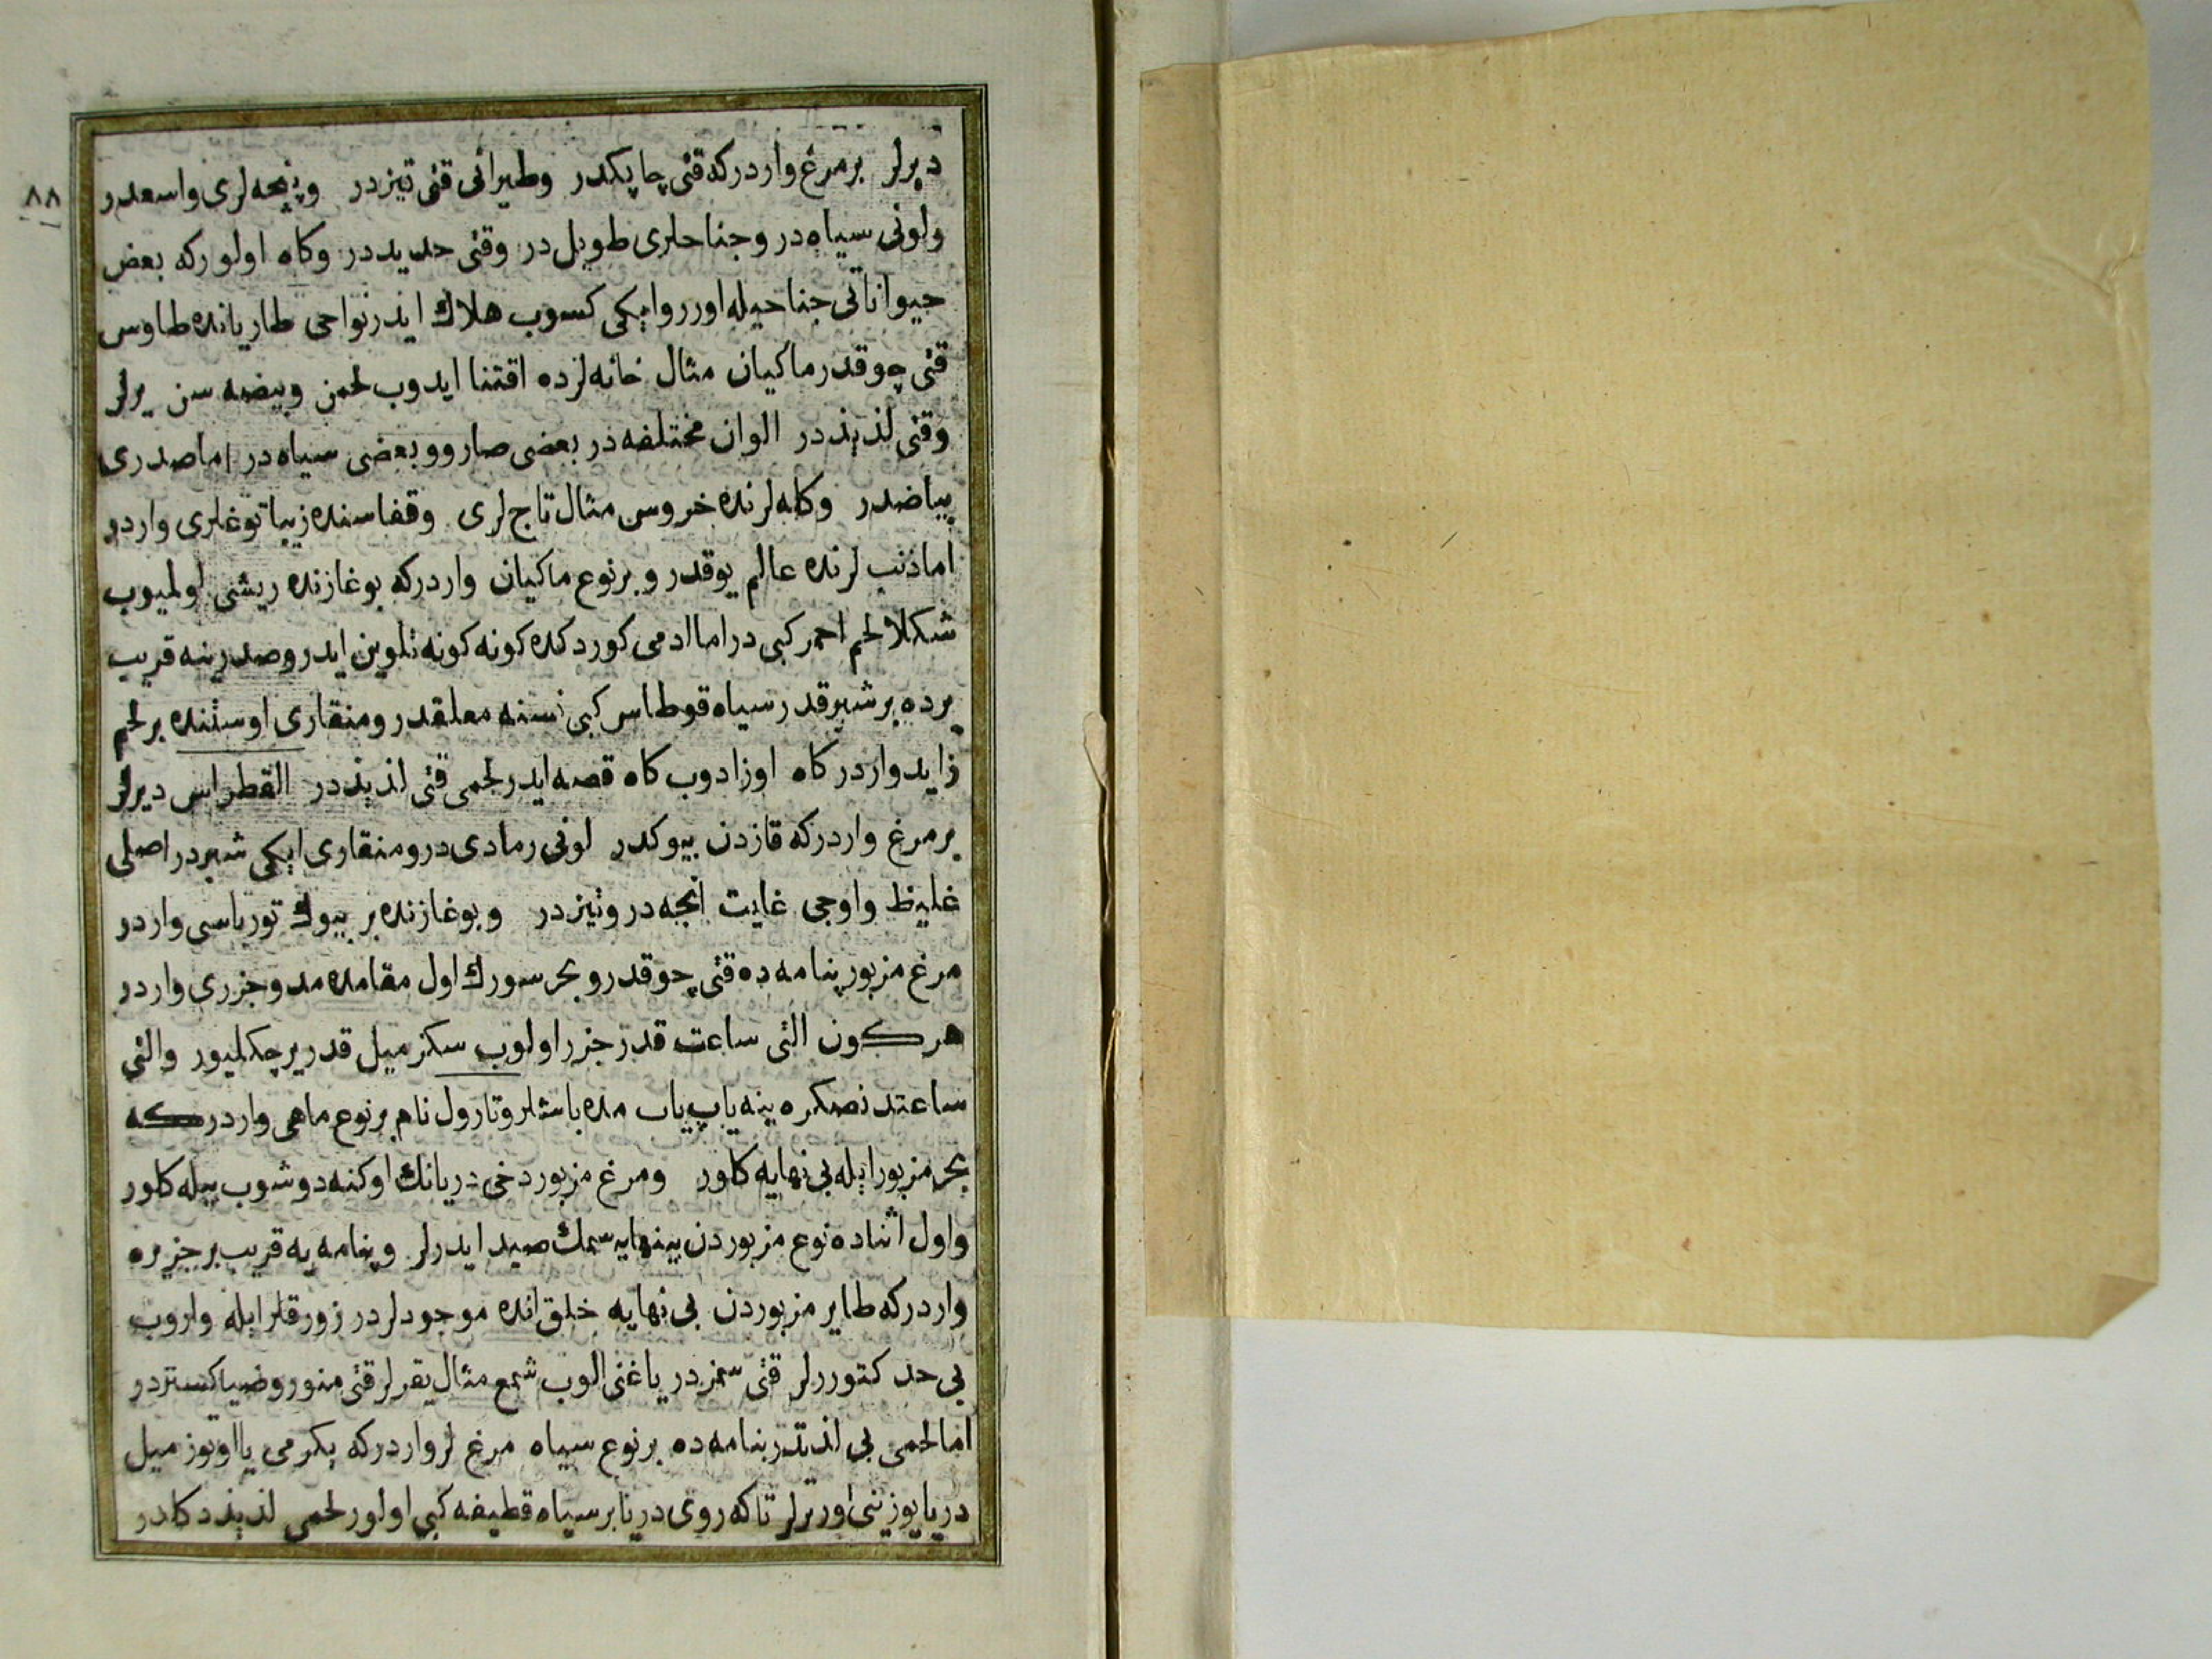 ٨٨
ديرلر برمرغ واردركه قتى چاپكدر وطيرانى قتى تيزدر وپنجه لرى واسعدر
ولونى سياه در وجناحلرى طويل در وقتى حديددر وكاه اولوركه بعض
حيواناتى جناحيله اورر وايكى كسوب هلاك ايدر نواحى طاريانده طاوس
قتى چوقدر ماكيان مثال خانه لرده اقتنا ايدوب لحمن وبيضه سن يرلر
وقتى لذيذدر الوان مختلفه در بعضى صارو وبعضى سياه در اما صدرى
بياضدر وكله لرنده خروس مثال تاج لرى وقفاسنده زيبا توغلرى واردر
اما ذنب لرنده عالم يوقدر و برنوع ماكيان واردركه بوغازنده ريشى اولميوب
شكلا لحم احمر كبى در اما ادمى كوردكده كونه كونه تلوين ايدر وصدرينه قريب
يرده بر شبر قدر سياه قوطاس كبى نسنه معلقدر ومنقارى اوستنده بر لحم
زايد واردر كاه اوزادوب كاه قصه ايدر لحمى قتى لذيذدر القطراس ديرلر
برمرغ واردركه قازدن بيوكدر لونى رمادى در ومنقارى ايكى شبردر اصلى
غليظ واوجى غايت انجه در وتيزدر وبوغازنده بر بيوك تورباسى واردر
مرغ مزبور پنامه ده قتى چوقدر و بحر سورك اول مقامده مد وجزرى واردر
هر كون التى ساعت قدر جزر اولوب سكز ميل قدر ير چكلميور والتى
ساعتدنصكره ينه ياپ ياب مده باشلر وتارول نام برنوع ماهى واردركه
بحر مزبور ايله بى نهايه كلور ومرغ مزبور دخى دريانك اوكنه دوشوب بيله كلور
واول اثناده نوع مزبوردن بينهايه سمك صيد ايدرلر وپنامه يه قريب بر جزيره
واردركه طاير مزبوردن بى نهايه خلق انده موجودلردر زورقلر ايله واروب
بى حد كتوررلر قتى سمزدر ياغنى الوب شمع مثال يقرلر قتى منور وضيا كستردر
اما لحمى بى لذتدر پنامه ده برنوع سياه مرغ لر واردركه يكرمى يا اوتوز ميل
دريا يوزينى اورترلر تا كه روى دريا بر سياه قطيفه كبى اولور لحمى لذيذ دكلدر